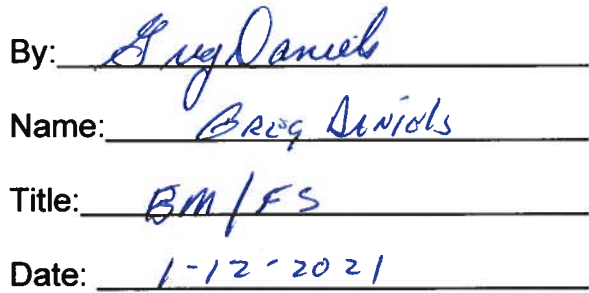 By: Greg Daniels
Name: Greg Daniels
Title: BM/FS
Date: 1-12-2021